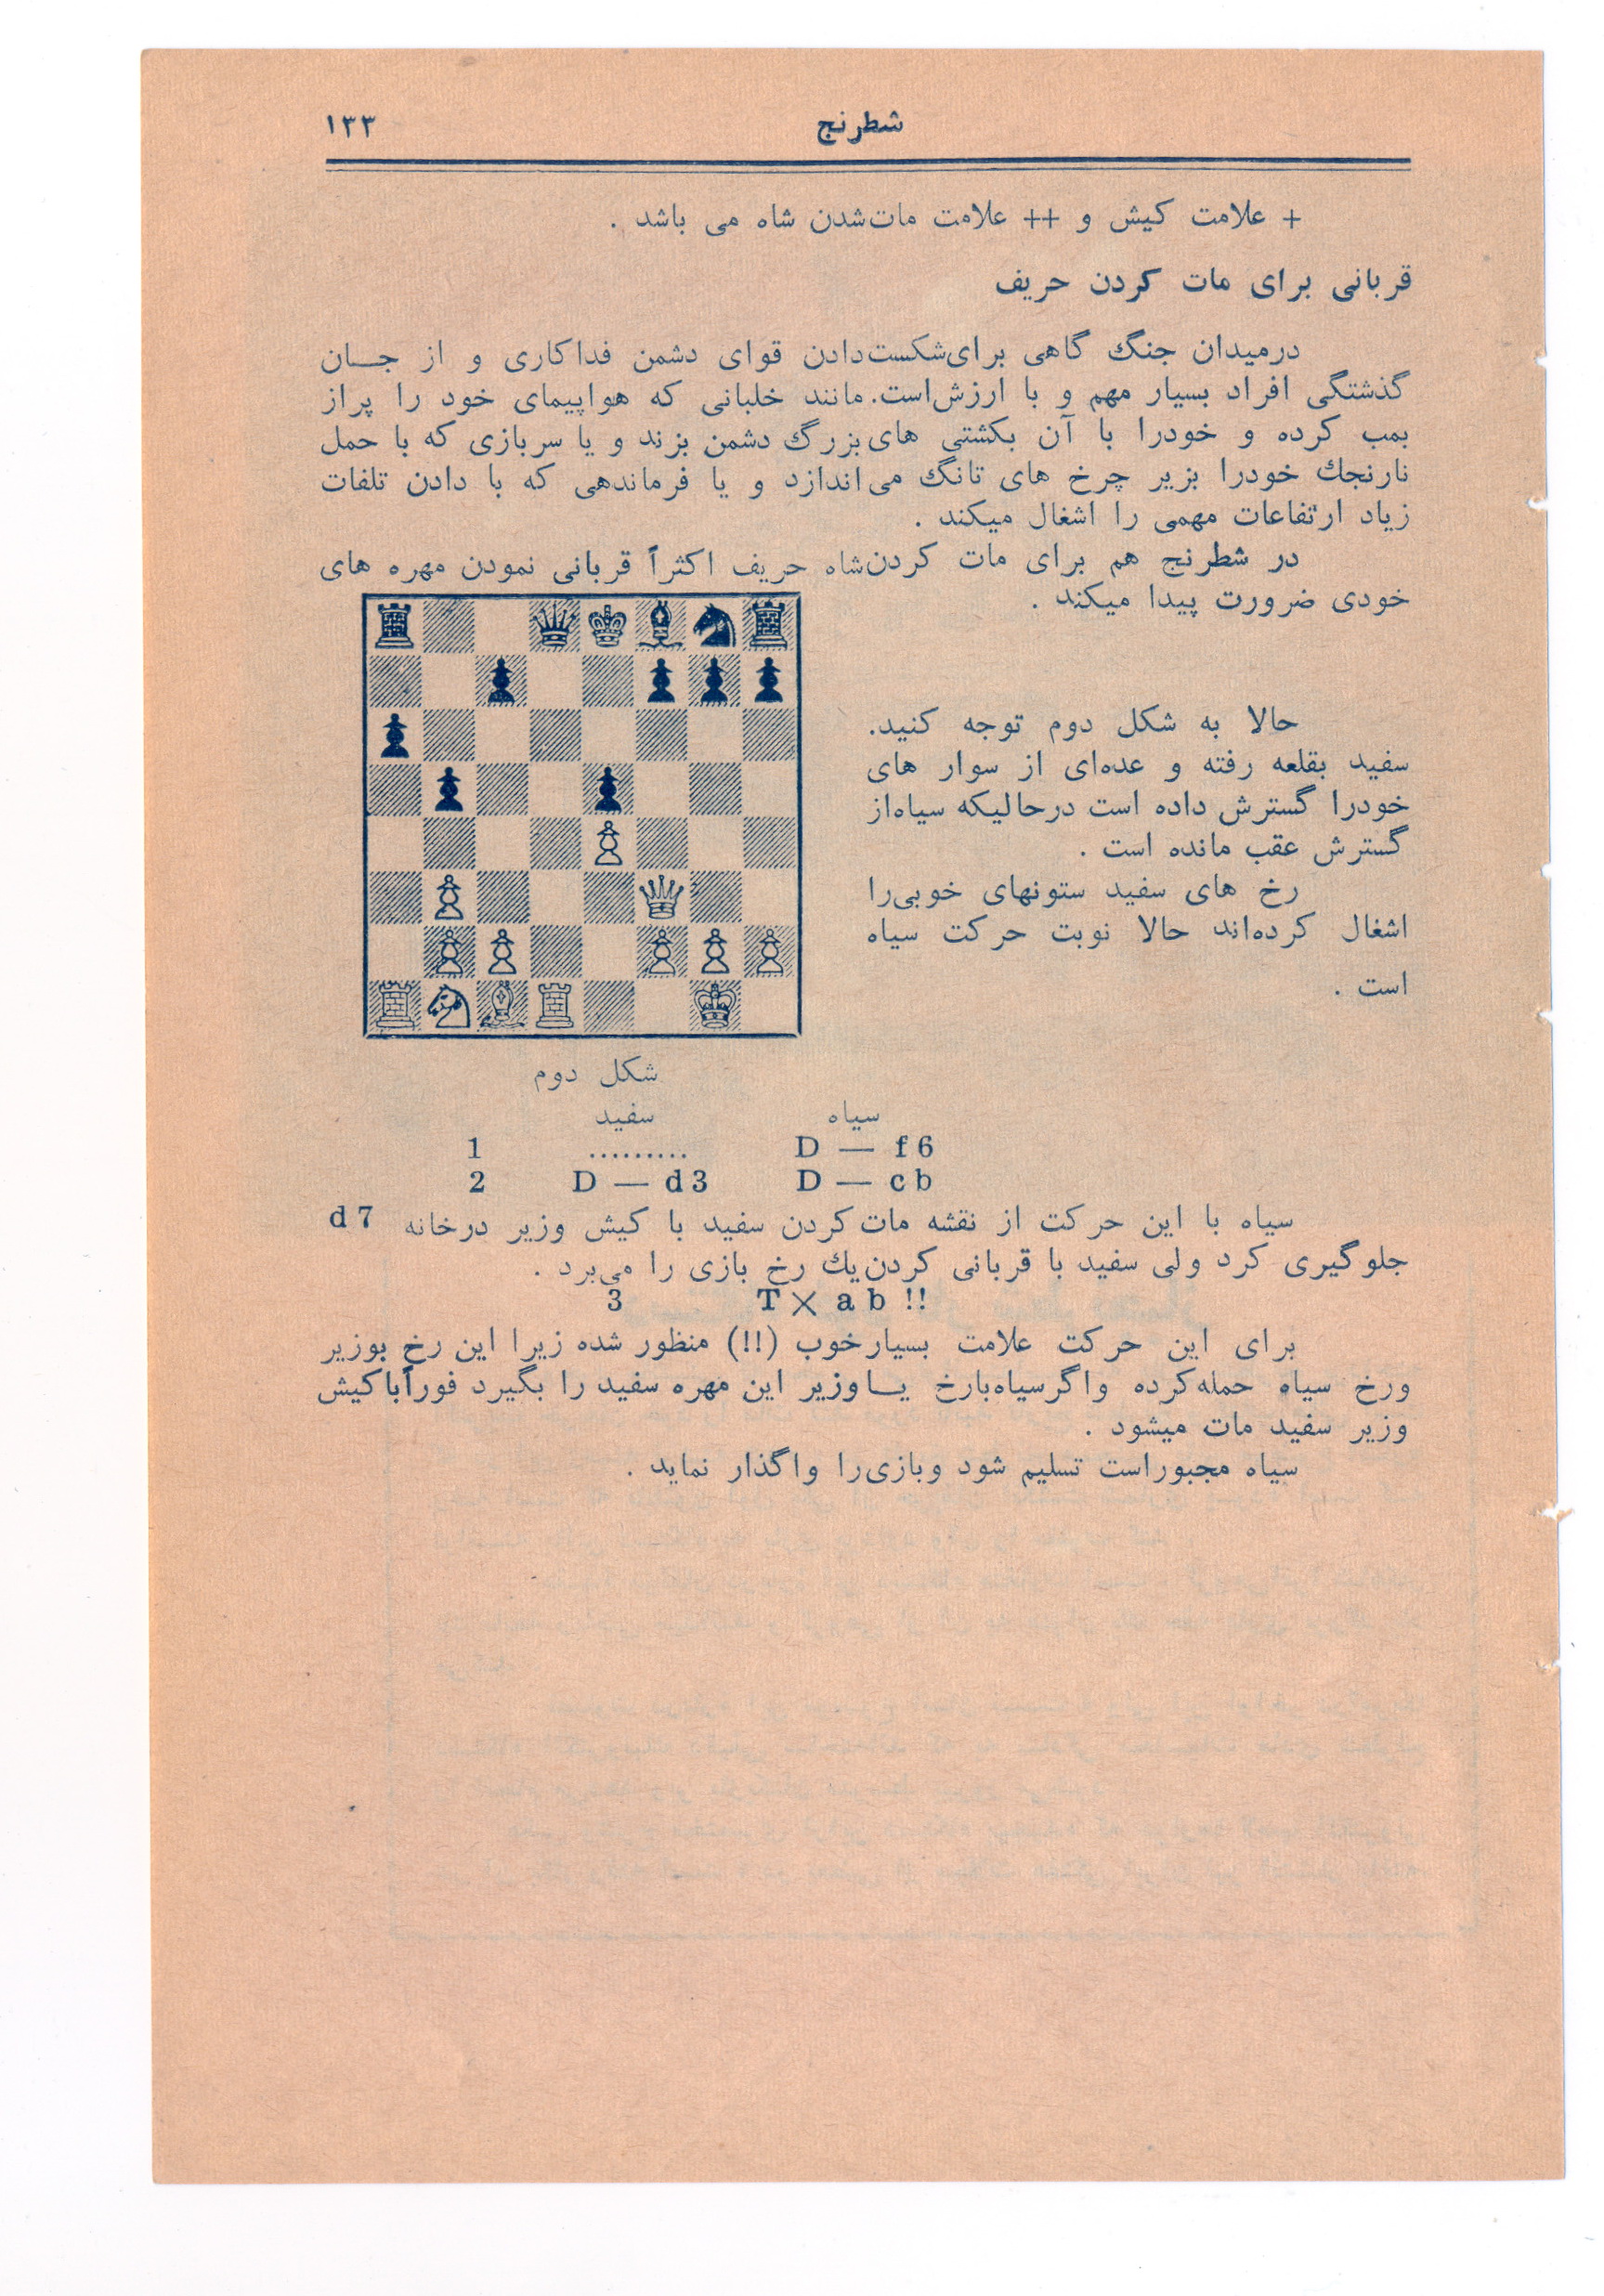 شطرنج ۱۳۳
+ علامت کیش و ++ علامت مات‌شدن شاه می باشد .
قربانی برای مات کردن حریف
درمیدان جنگ گاهی برای‌شکست‌دادن قوای دشمن فداکاری و از جـان
گذشتگی افراد بسیار مهم و با ارزش‌است. مانند خلبانی که هواپیمای خود را پراز
بمب کرده و خودرا با آن بکشتی های‌بزرگ دشمن بزند و یا سربازی که با حمل
نارنجك خودرا بزیر چرخ های تانگ می‌اندازد و یا فرماندهی که با دادن تلفات
زیاد ارتفاعات مهمی را اشغال میکند .
در شطرنج هم برای مات کردن‌شاه حریف اکثراً قربانی نمودن مهره های
خودی ضرورت پیدا میکند .
حالا به شکل دوم توجه کنید.
سفید بقلعه رفته و عده‌ای از سوار های
خودرا گسترش داده است درحالیکه سیاه‌از
گسترش عقب مانده است .
رخ های سفید ستونهای خوبی‌را
اشغال کرده‌اند حالا نوبت حرکت سیاه
است .
شکل دوم
سفید سیاه
1 ......... D — f 6
2 D — d 3 D — c b
سیاه با این حرکت از نقشه مات‌کردن سفید با کیش وزیر درخانه d 7
جلوگیری کرد ولی سفید با قربانی کردن‌یك رخ بازی را می‌برد .
3 T × a b !!
برای این حرکت علامت بسیارخوب (!!) منظور شده زیرا این رخ بوزیر
ورخ سیاه حمله‌کرده واگرسیاه‌بارخ یـاوزیر این مهره سفید را بگیرد فوراًباکیش
وزیر سفید مات میشود .
سیاه مجبوراست تسلیم شود وبازی‌را واگذار نماید .